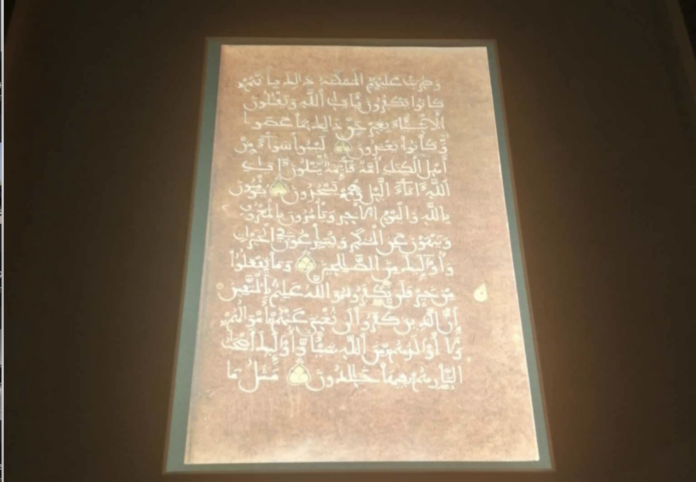 وضربت عليهم المسكنة ذلك بأنهم
كانوا يكفرون بآيات الله ويقتلون
الأنبياء بغير حق ذلك بما عصوا
وكانوا يعتدون ليسوا سواء من
أهل الكتاب أمة قائمة يتلون آيات
الله آناء الليل وهم يسجدون يؤمنون
بالله واليوم الآخر ويأمرون بالمعروف
وينهون عن المنكر ويسارعون في الخيرات
وأولئك من الصالحين وما تفعلوا
من خير فلن تكفروه والله عليم بالمتقين
إن الذين كفروا لن تغني عنهم أموالهم
ولا أولادهم من الله شيئا وأولئك أصحاب
النار هم فيها خالدون مثل ما